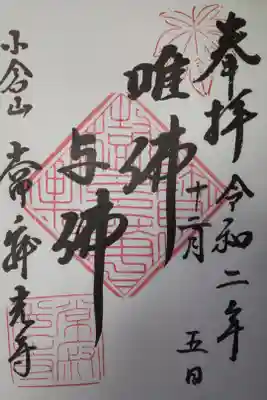 奉拝
令和二年
十二月
五日
唯佛
与佛
小倉山
常寂光寺